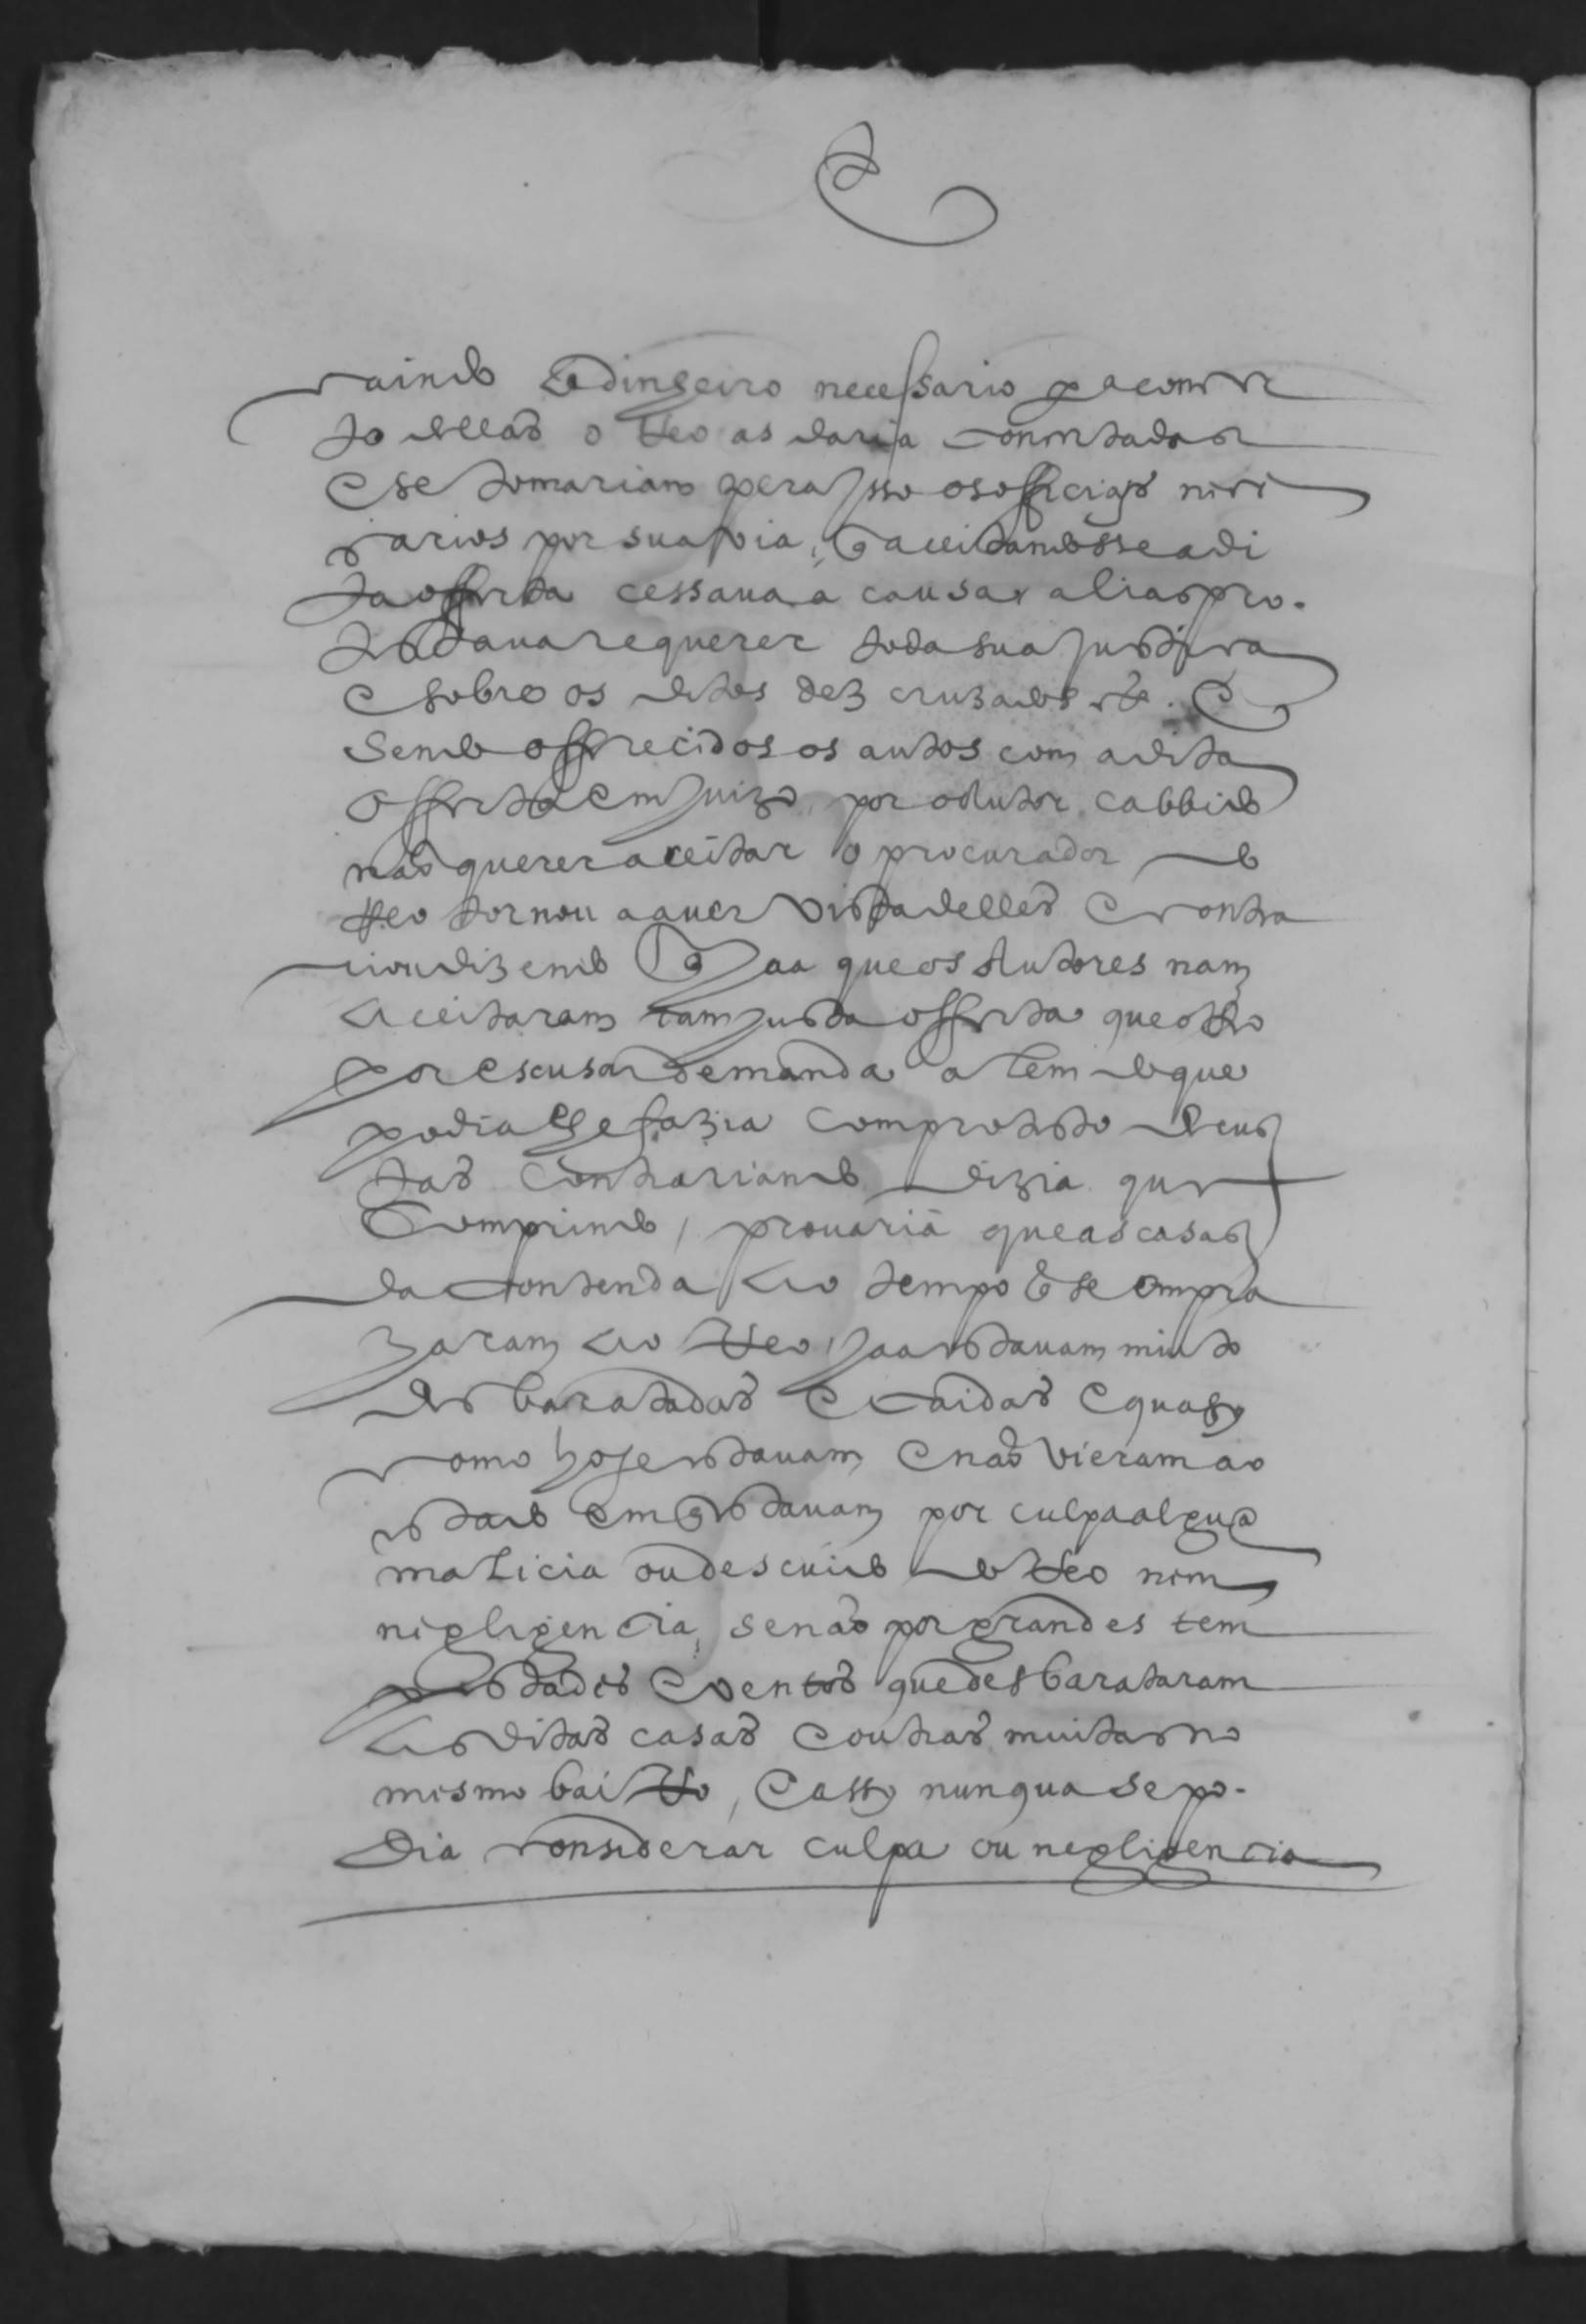 cando lhe dinheiro necessario pa o concer
to dellas o Reo as daria concertadas
e se tomariam pera isso os officiaes nece
sarios por sua via, e aceitandosse a di
ta offerta cessaua a causa, alias pro-
testaua requerer toda sua justiça
e sobre os ditos dez cruzados etc. E
sendo offrecidos os autos com a dita
offerta em juizo, por o Autor cabbido
não querer aceitar o procurador do
Reo tornou a auer vista delles e contra
riou dizendo q jaa que os Autores nam
aceitaram tam justa offerta que o Reo
por escusar demanda alem do que
podia lhe fazia com protesto de cus
tas contrariando dizia que
comprindo, prouaria que as casas
da contenda ao tempo q se empra
zaram ao Reo jaa estauam muito
desbaratadas e caidas e quasy
como hoje estauam, e não vieram ao
estado em q estauam por culpa algũa
malicia ou descuido do Reo nem
negligencia, senão por grandes tem
pestades e ventos que desbarataram
as ditas casas e outras muitas no
mesmo bairro, e assy nunqua se po-
dia considerar culpa ou negligencia